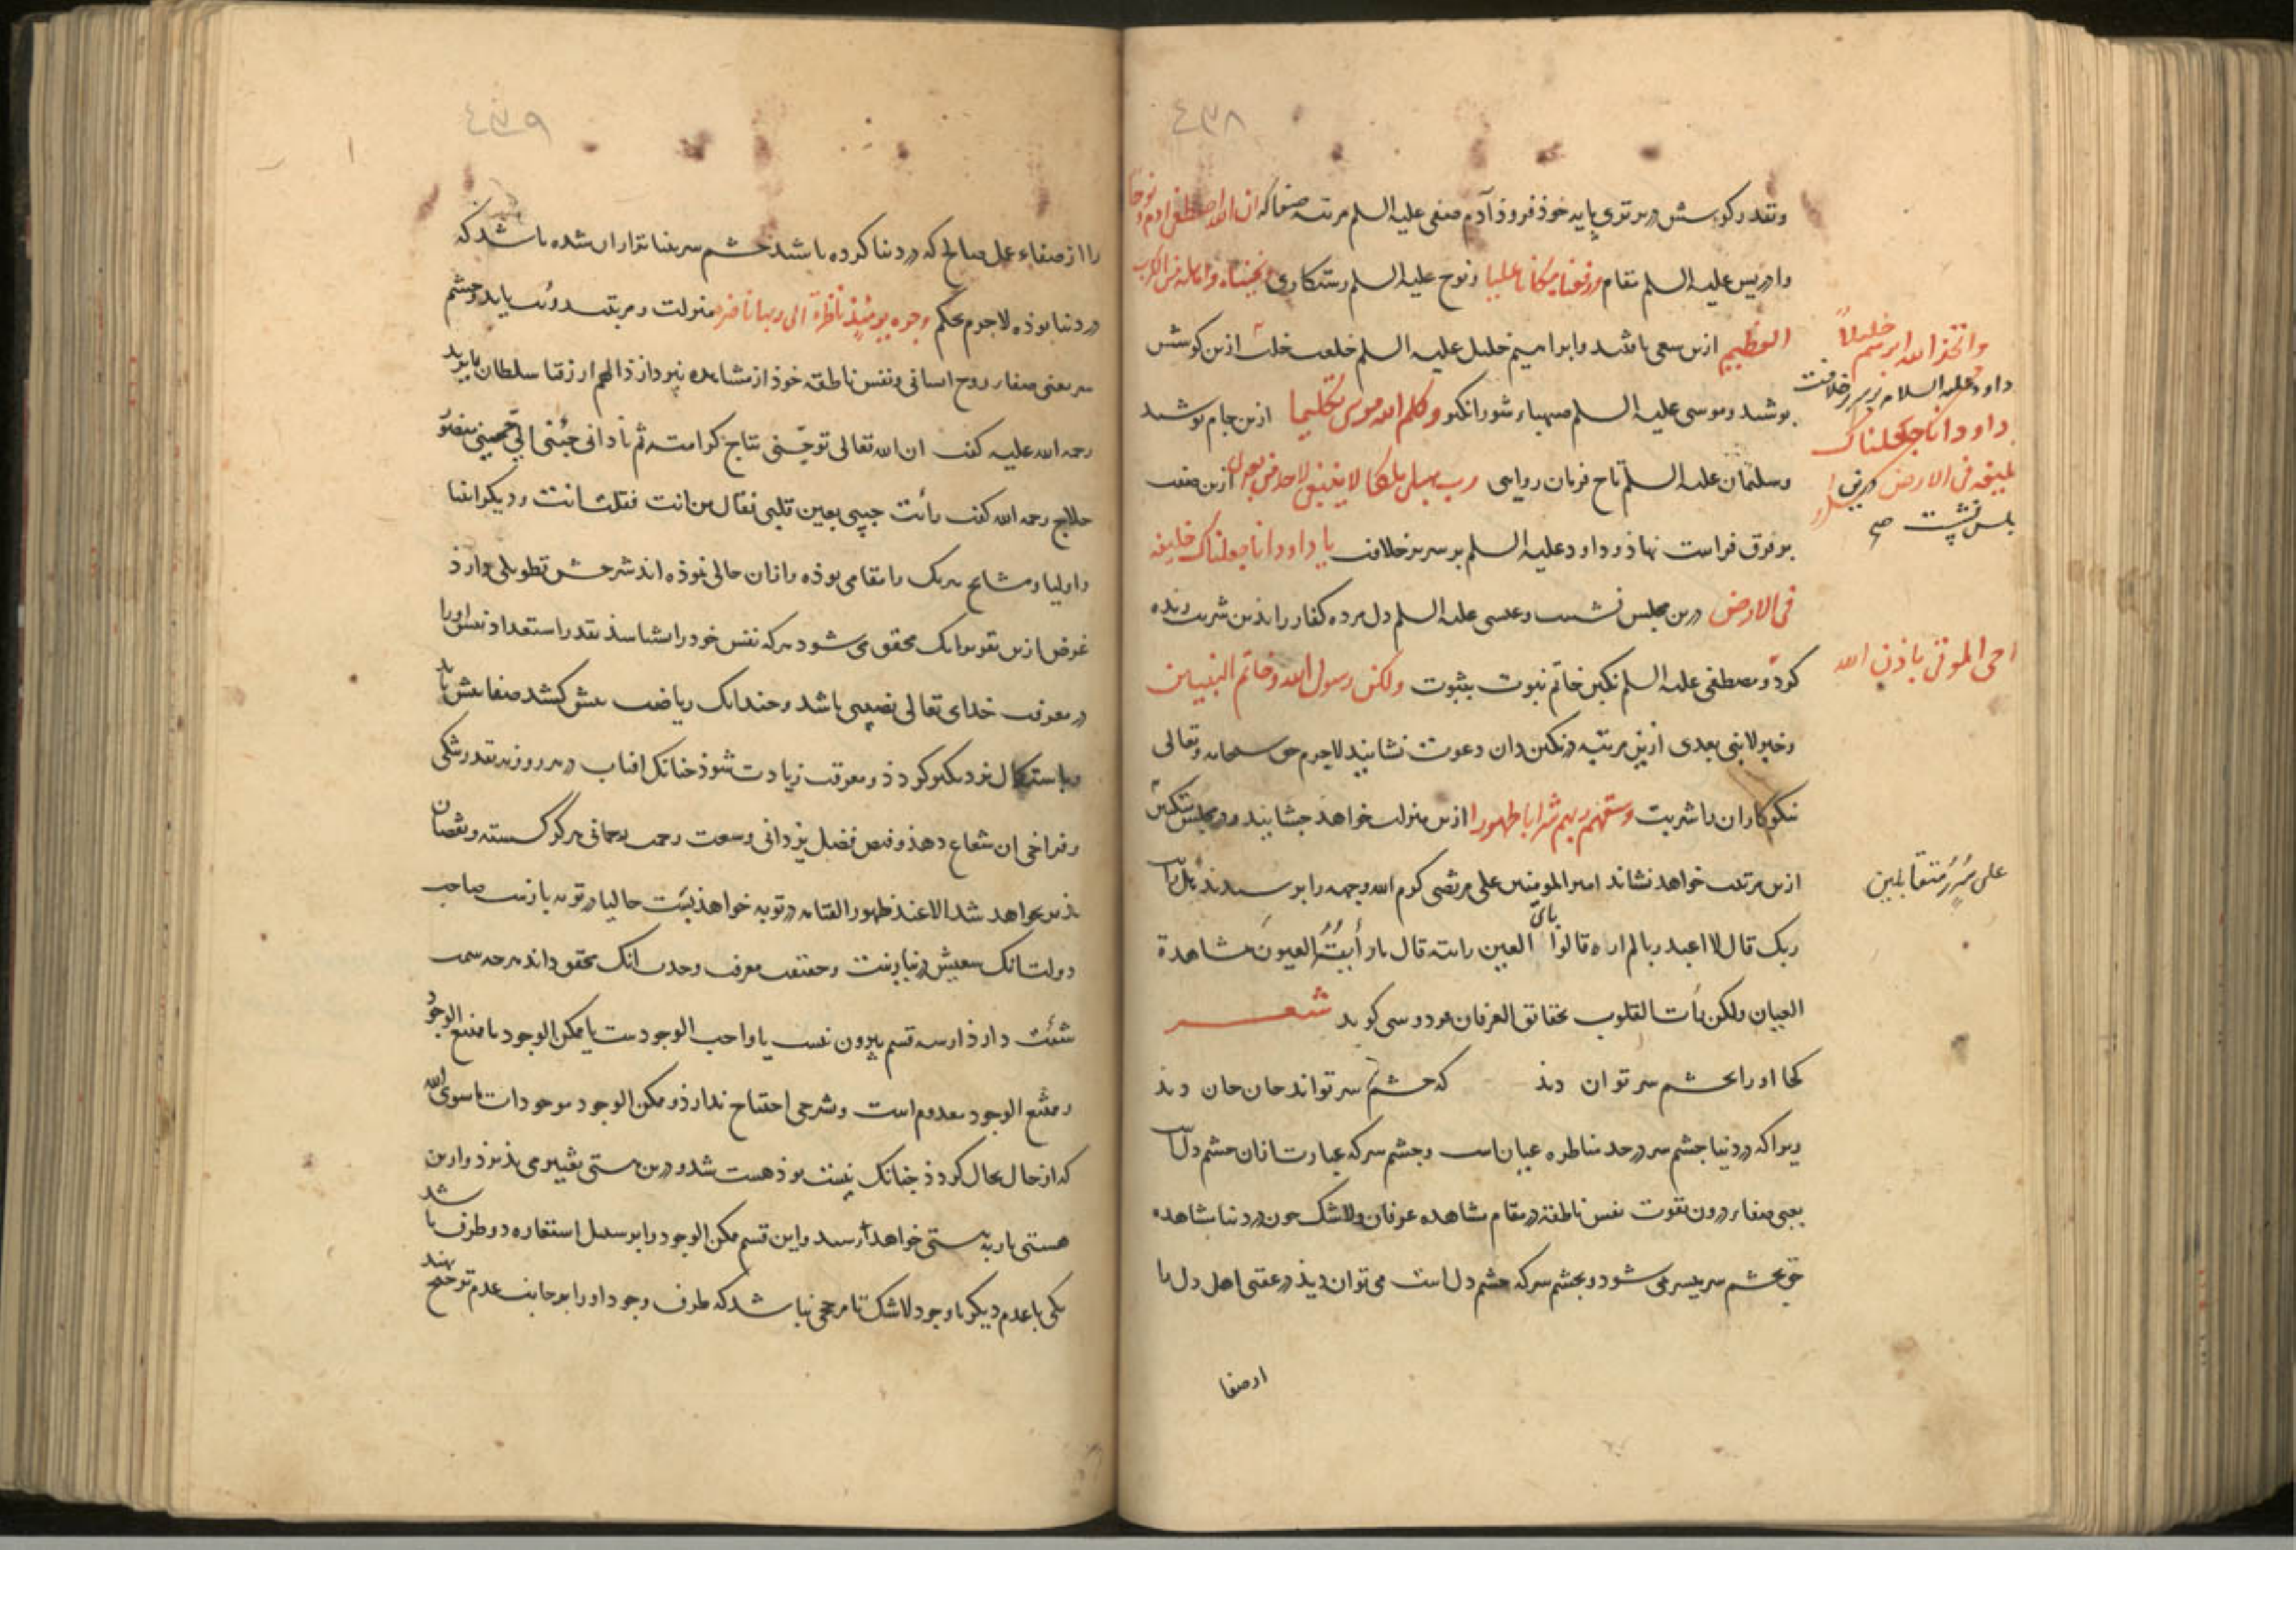 ٤٣٨
وبقدر کوشش در برتری پایه خوذ فروذ آدم صفی علیه السلم مرتبه صفا که ان الله اصطفی ادم ونوحا
وادریس علیه السلم بقام ورفعناه مکانا علیا ونوح علیه السلم رستکاری فنجیناه واهله من الکرب
العظیم ازین سعی باشد وابراهیم خلیل علیه السلم خلعت خلت ازین کوشش
واتخذ الله ابرهیم خلیلاً
بوشید وموسی علیه السلم صهباء شور انکیز وکلم الله موسی تکلیما ازین جام نوشید
داود علیه السلام بر سریر خلافت
یا داود انا جعلناک
خلیفه فی الارض درین
مجلس نشست صح
وسلیمان علیه السلم تاج فرمان روایی رب هب لی ملکا لا ینبغی لاحد من بعدی ازین صفت
بر فرق فراست نهاذ وداود علیه السلم بر سریر خلافت یا داود انا جعلناک خلیفه
فی الارض درین مجلس نشست وعیسی علیه السلم دل مرده کفار را بذین شربت زنده
احی الموتی باذن الله
کرد ومصطفی علیه السلم نکین خاتم نبوت بثبوت ولکن رسول الله وخاتم النبیین
وخبر لا نبی بعدی ازین مرتبه در نکین دان دعوت نشانید لاجرم حق سبحانه وتعالی
نیکوکاران را شربت وسقیهم ربهم شرابا طهورا ازین منزلت خواهذ چشانید ودر مجلس متکئین
علی سُرُرٍ مُتقابلین
ازین مرتبت خواهد نشاند امیر المومنین علی مرتضی کرم الله وجهه را بر سیدند هل رایت
ربک قال لا اعبد ربا لم اره قالوا بای العین رایته قال ما رأیتُه العیونُ مشاهدة
العیان ولکن رأت القلوب بحقائق العرفان فردوسی کوید شعر
کجا او را بچشم سر توان دید که چشم سر تواند جان جان دید
زیرا که در دنیا چشم سر در حد مناظره عیان است وچشم سر که عبارت ازان چشم دل است
یعنی صفاء درون بقوت نفس ناطقه در مقام مشاهده عرفان ولا شک چون در دنیا مشاهده
حق بچشم سر میسر می شود وبچشم سر که چشم دل است می توان دیذ در عقبی اهل دل را
از صفا
٤٣٩
را از صفاء عمل صالح که در دنیا کرده باشد چشم سر بمنابت ازان شده باشد که
در دنیا بوذه لاجرم بحکم وجوه یومئذ ناضرة الی ربها ناظره منزلت ومرتبت رؤیت یابد وچشم
سر یعنی صفاء روح انسانی ونفس ناطقه خوذ از مشاهده نپردازذ اللهم ارزقنا سلطان بایزید
رحمه الله علیه کفت ان الله تعالی توجنی بتاج کرامته ثم نادانی جئنی الی حبیبی منصور
حلاج رحمه الله کفت رأیت حبیبی بعین قلبی فقال من انت فقلت انت ودیکر انبیا
واولیا ومشایخ هر یک را مقامی بوذه وازان حالی نموذه اند شرحش تطویلی دارذ
غرض ازین تقریر انک محقق می شود هر که نفس خود را بشناسذ بقدر استعداد نفس او را
در معرفت خدای تعالی نصیبی باشد وچندانک ریاضت بیش کشد صفا بیش یابد
وباستکمال نزدیکتر کردذ ومعرفت زیادت شوذ چنانک افتاب در هر روزنه بقدر تنکی
وفراخی ان شعاع دهذ وفیض فضل یزدانی وسعت رحمت رحمانی هرکز کسسته ونقصان
بذیر نخواهد شد الا عند ظهور الفتنه در توبه خواهذ بست حالیا در توبه بازست صاحب
دولت انک سعیش در نیابذست وحقیقت معرفت وحدت انک محقق داند هرچه سمت
شیئت دارذ از سه قسم بیرون نیست یا واجب الوجودست یا ممکن الوجود یا ممتنع الوجود
وممتنع الوجود معدوم است وشرحی احتیاج ندارذ وممکن الوجود موجودات ماسوی الله
که از حال بحال کردذ چنانک نیست بوذ هست شد ودرین هستی تغییر می بذیرذ وازین
هستی باز به نیستی خواهد رسید واین قسم ممکن الوجود را بر سبیل استعاره دو طرف باشد
یکی با عدم دیکر با وجود لا شک تا مرجحی نباشد که طرف وجود او را بر جانب عدم ترجیح نهند